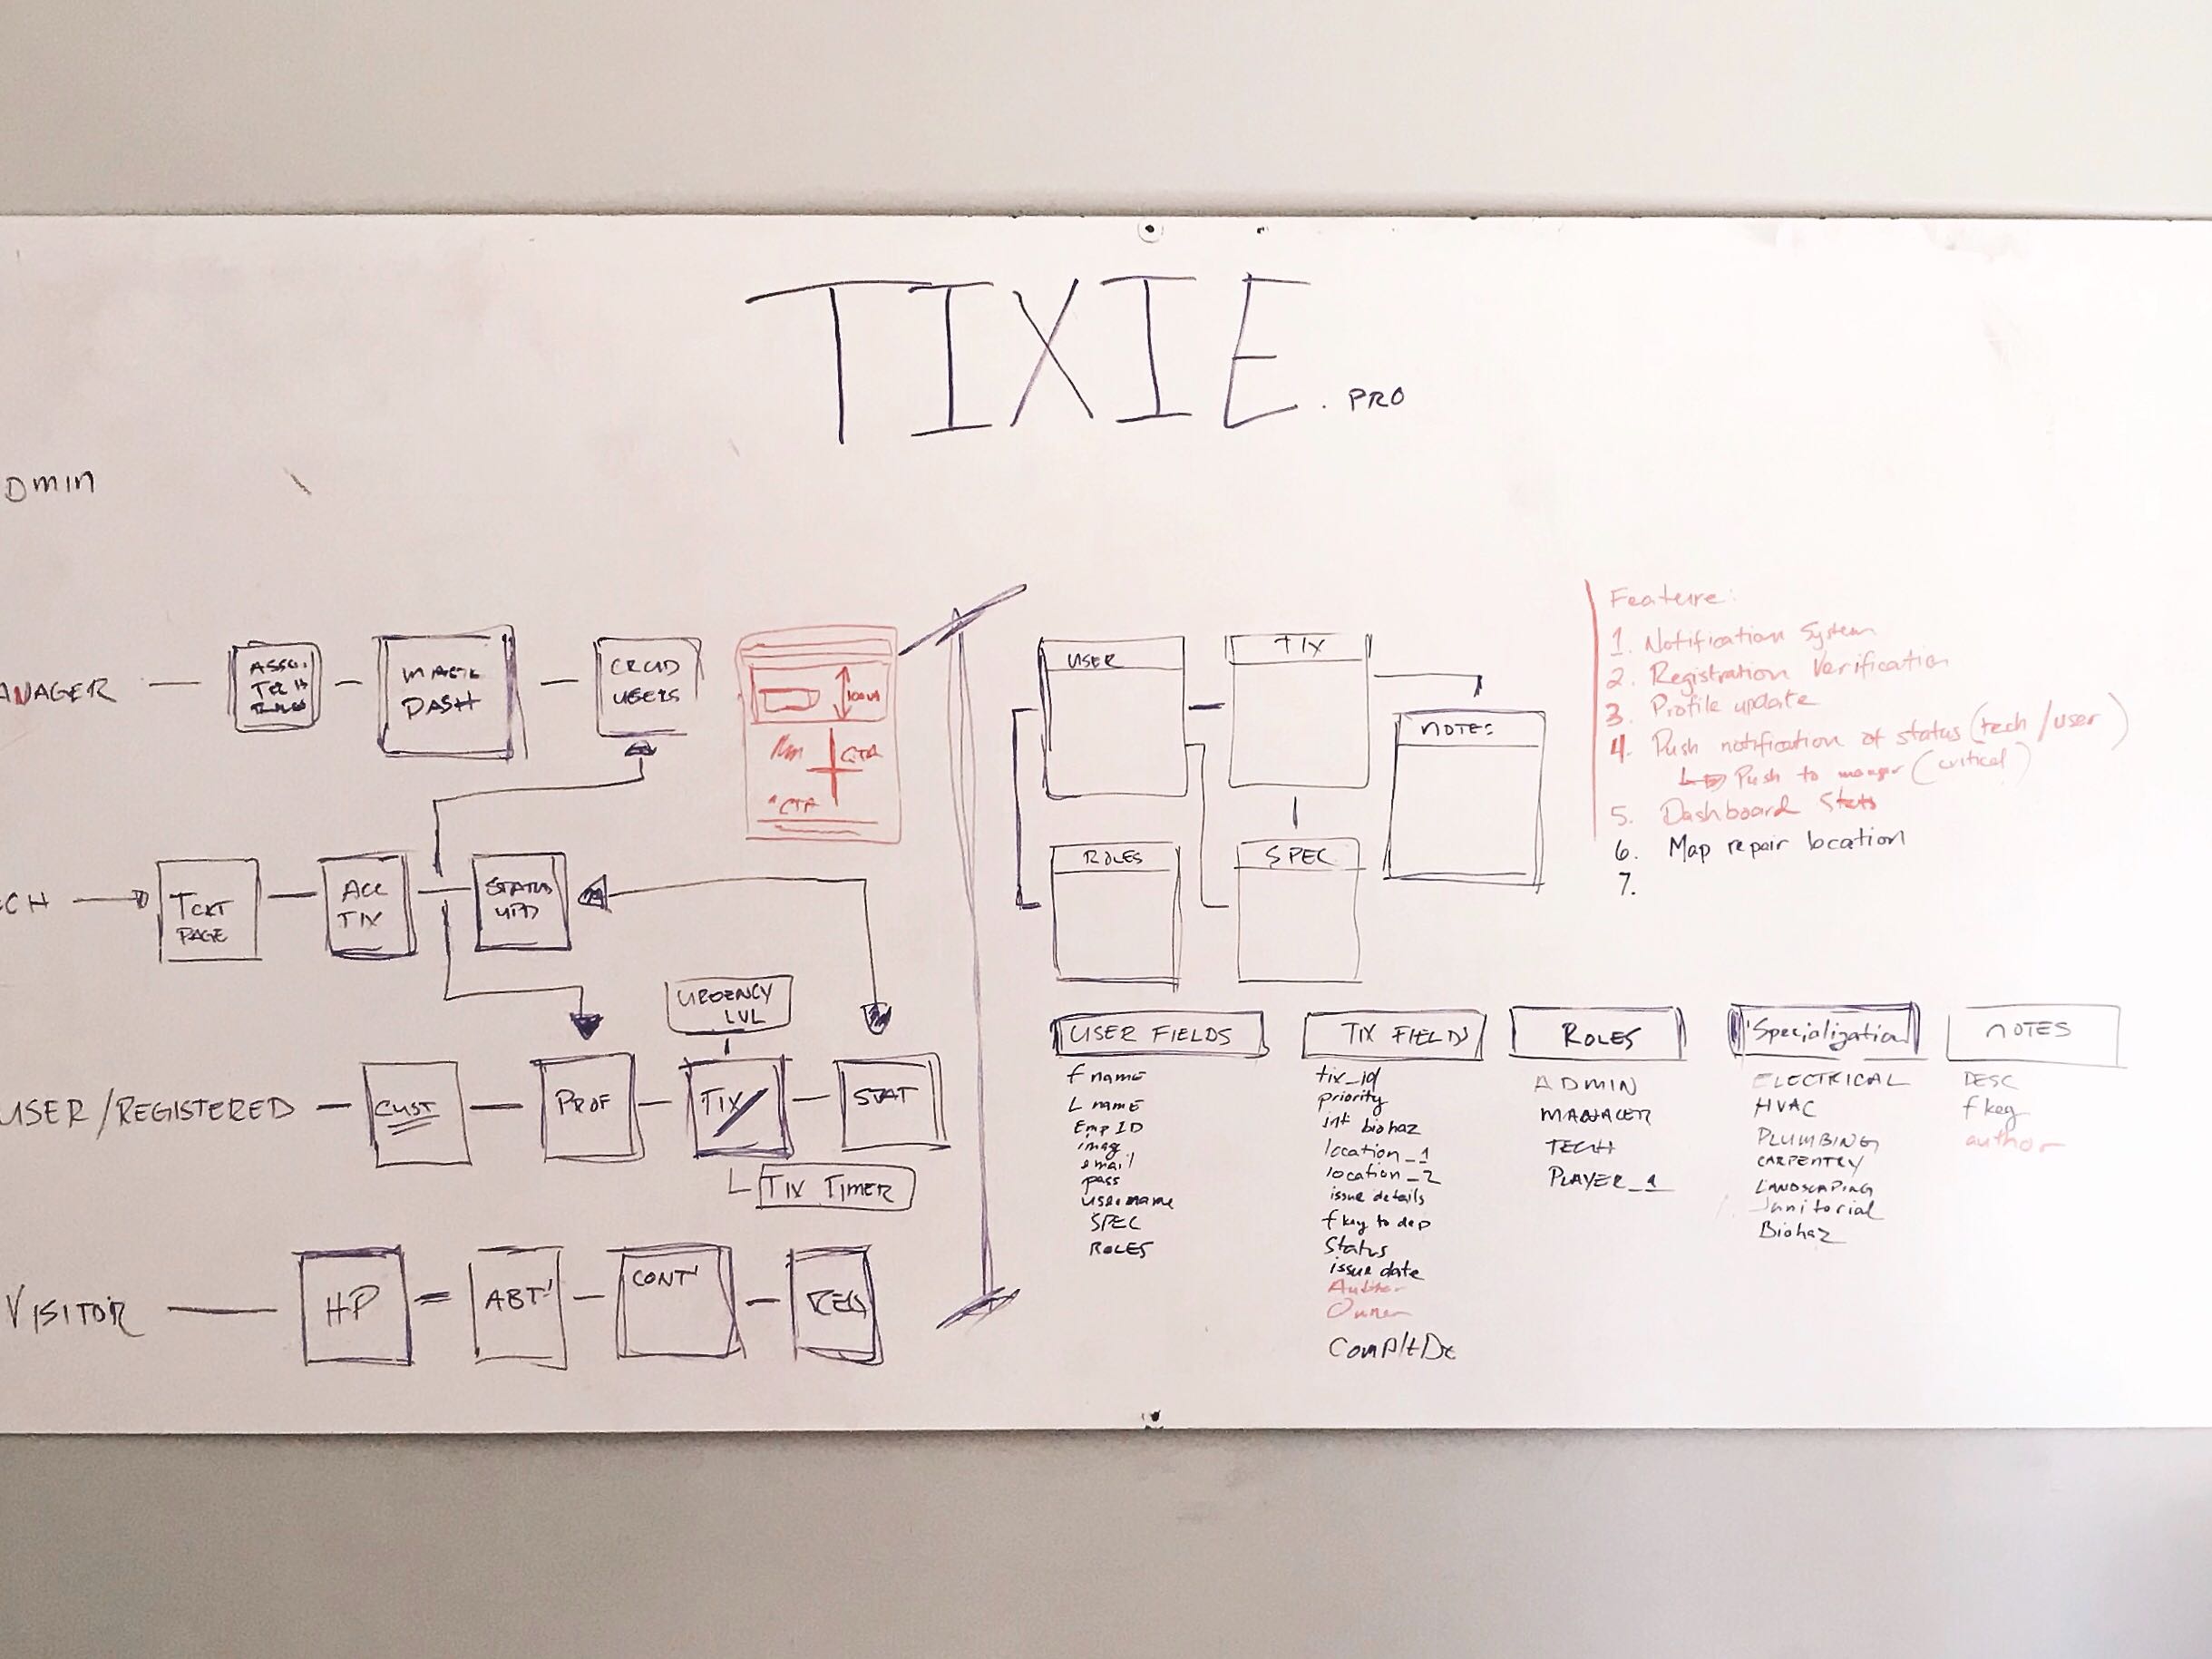 TIXIE.PRO
DMIN
ANAGER
DASH
CRUD
USERS
100vh
CTA
CTA
CH
TCKT
PAGE
ACC
TIX
STATUS
UPD
URGENCY
LVL
USER/REGISTERED
CUST
PROF
TIX
STAT
TIX TIMER
VISITOR
HP
ABT
CONT
REG
USER
TIX
NOTES
ROLES
SPEC
Feature:
1. Notification System
2. Registration Verification
3. Profile update
4. Push notification of status (tech/user)
Push to manger (critical)
5. Dashboard Stats
6. Map repair location
7.
USER FIELDS
f name
L name
Emp ID
imag
email
pass
username
SPEC
ROLES
TIX FIELDS
tix_id
priority
int biohaz
location_1
location_2
issue details
f key to dep
Status
issue date
Author
Owner
ROLES
ADMIN
MANAGER
TECH
PLAYER_1
Specialization
ELECTRICAL
HVAC
PLUMBING
CARPENTRY
LANDSCAPING
Janitorial
Biohaz
NOTES
DESC
f key
author